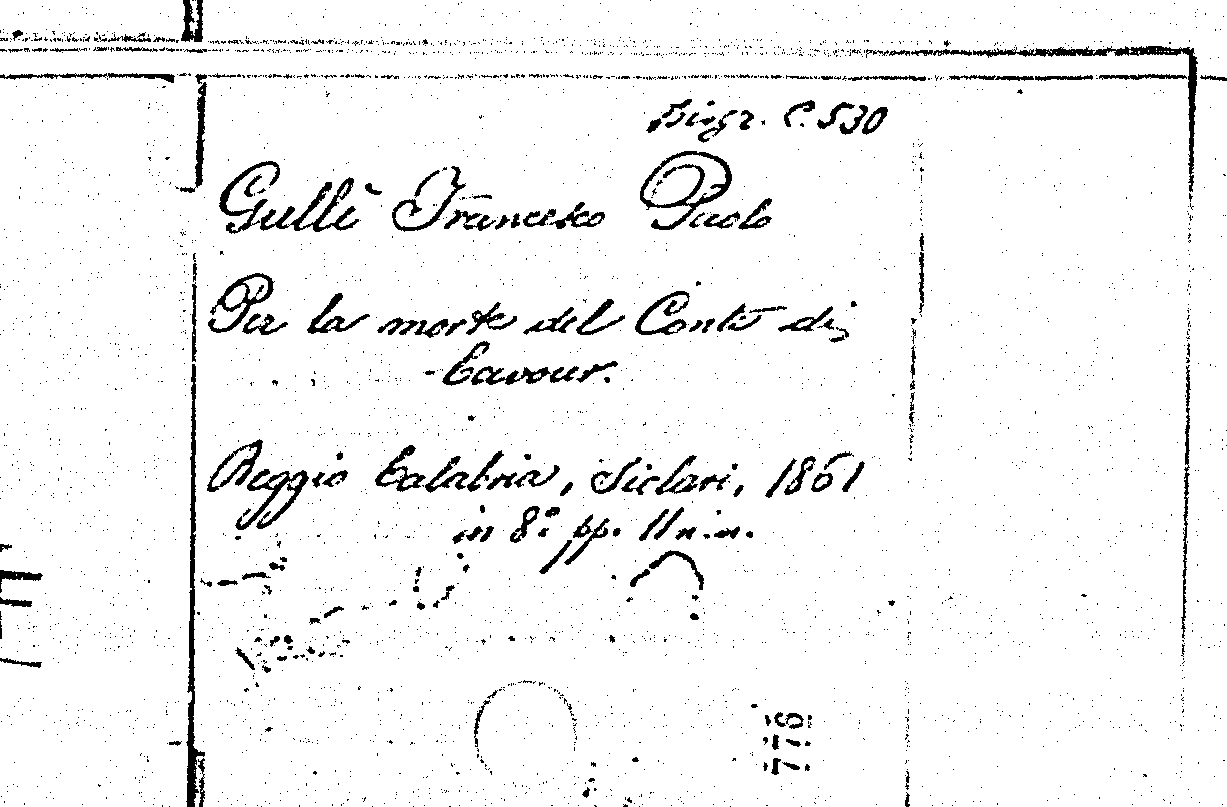 Biogr. C. 530
Gullì Francesco Paolo
Per la morte del Conte di
Cavour.
Reggio Calabria, Siclari, 1861
in 8º pp. 11 n. n.